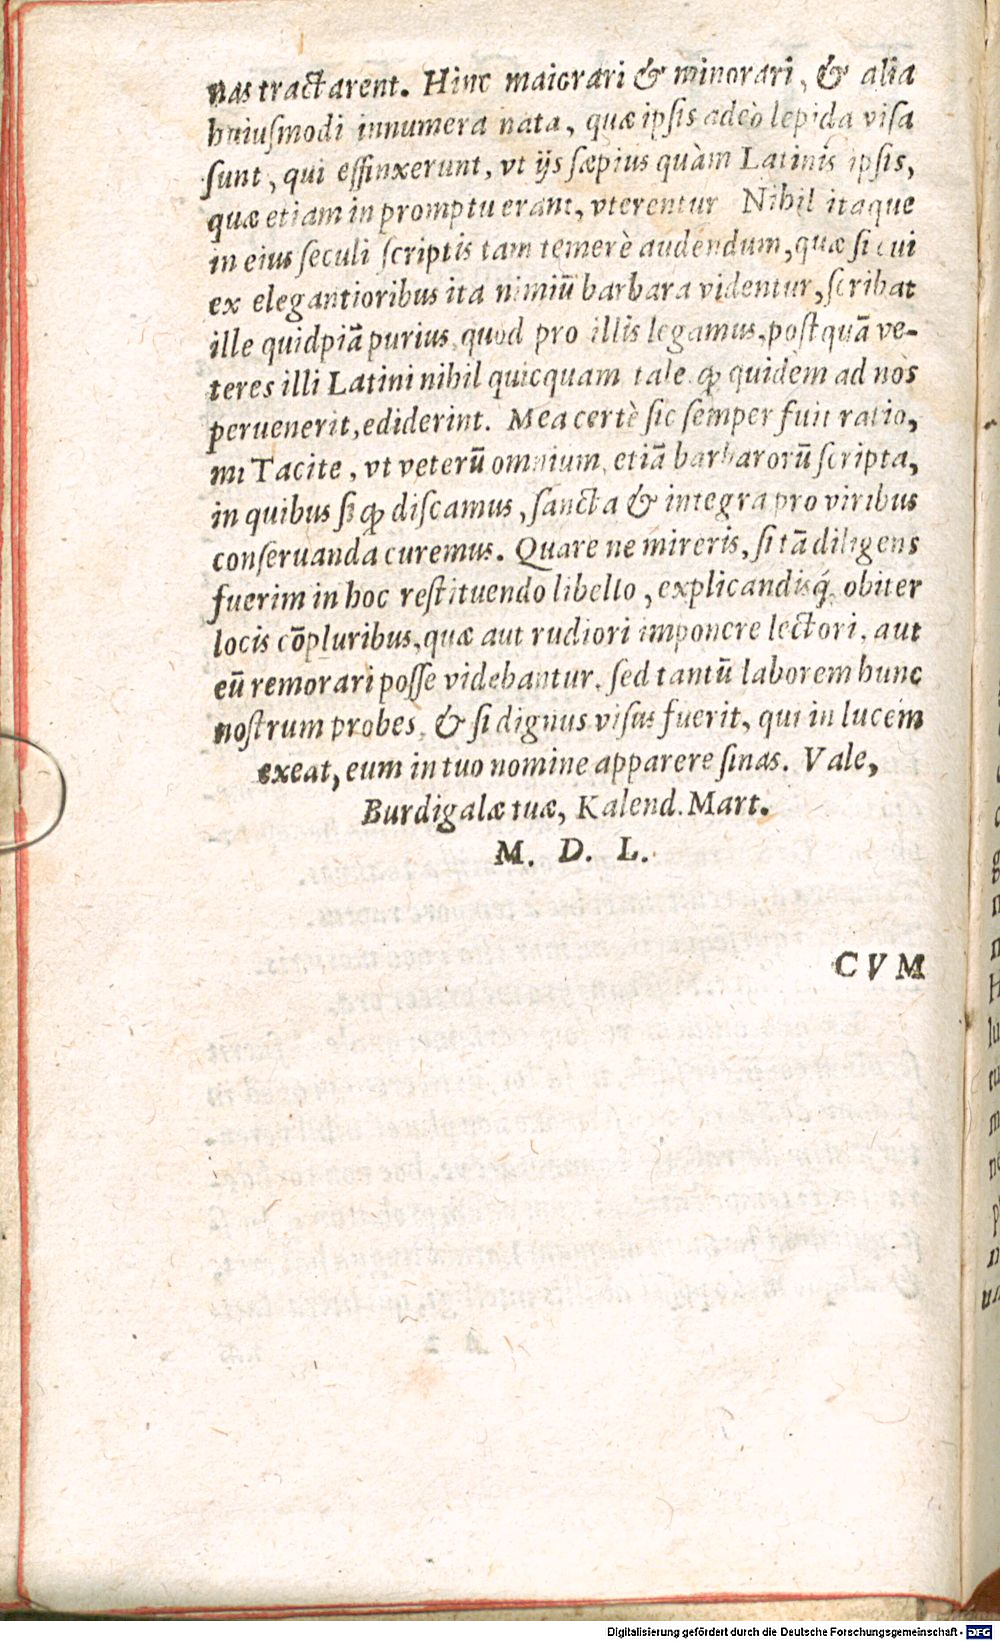 nas tractarent. Hinc maiorari & minorari, & alia
huiusmodi innumera nata, quæ ipsis adeò lepida visa
sunt, qui effinxerunt, vt ijs sæpius quàm Latinis ipsis,
quæ etiam in promptu erant, vterentur Nihil itaque
in eius seculi scriptis tam temerè audendum, quæ si cui
ex elegantioribus ita nimiū barbara videntur, scribat
ille quidpiā purius quod pro illis legamus, postquā ve-
teres illi Latini nihil quicquam tale ꝙ quidem ad nos
peruenerit, ediderint. Mea certè sic semper fuit ratio,
mi Tacite, vt veterū omnium, etiā barbarorū scripta,
in quibus sit ꝙ discamus, sancta & integra pro viribus
conseruanda curemus. Quare ne mireris, si tā diligens
fuerim in hoc restituendo libello, explicandisq́; obiter
locis cōpluribus, quæ aut rudiori imponere lectori, aut
eū remorari posse videbantur, sed tantū laborem hunc
nostrum probes, & si dignus visus fuerit, qui in lucem
exeat, eum in tuo nomine apparere sinas. Vale,
Burdigalæ tuæ, Kalend. Mart.
M. D. L.
CVM
Digitalisierung gefördert durch die Deutsche Forschungsgemeinschaft - DFG